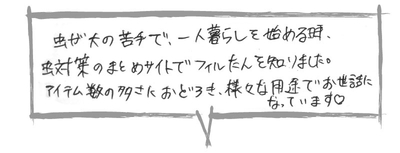 虫が大の苦手で、一人暮らしを始める時、
虫対策のまとめサイトでフィルたんを知りました。
アイテム数の多さにおどろき、様々な用途でお世話に
なっています♡